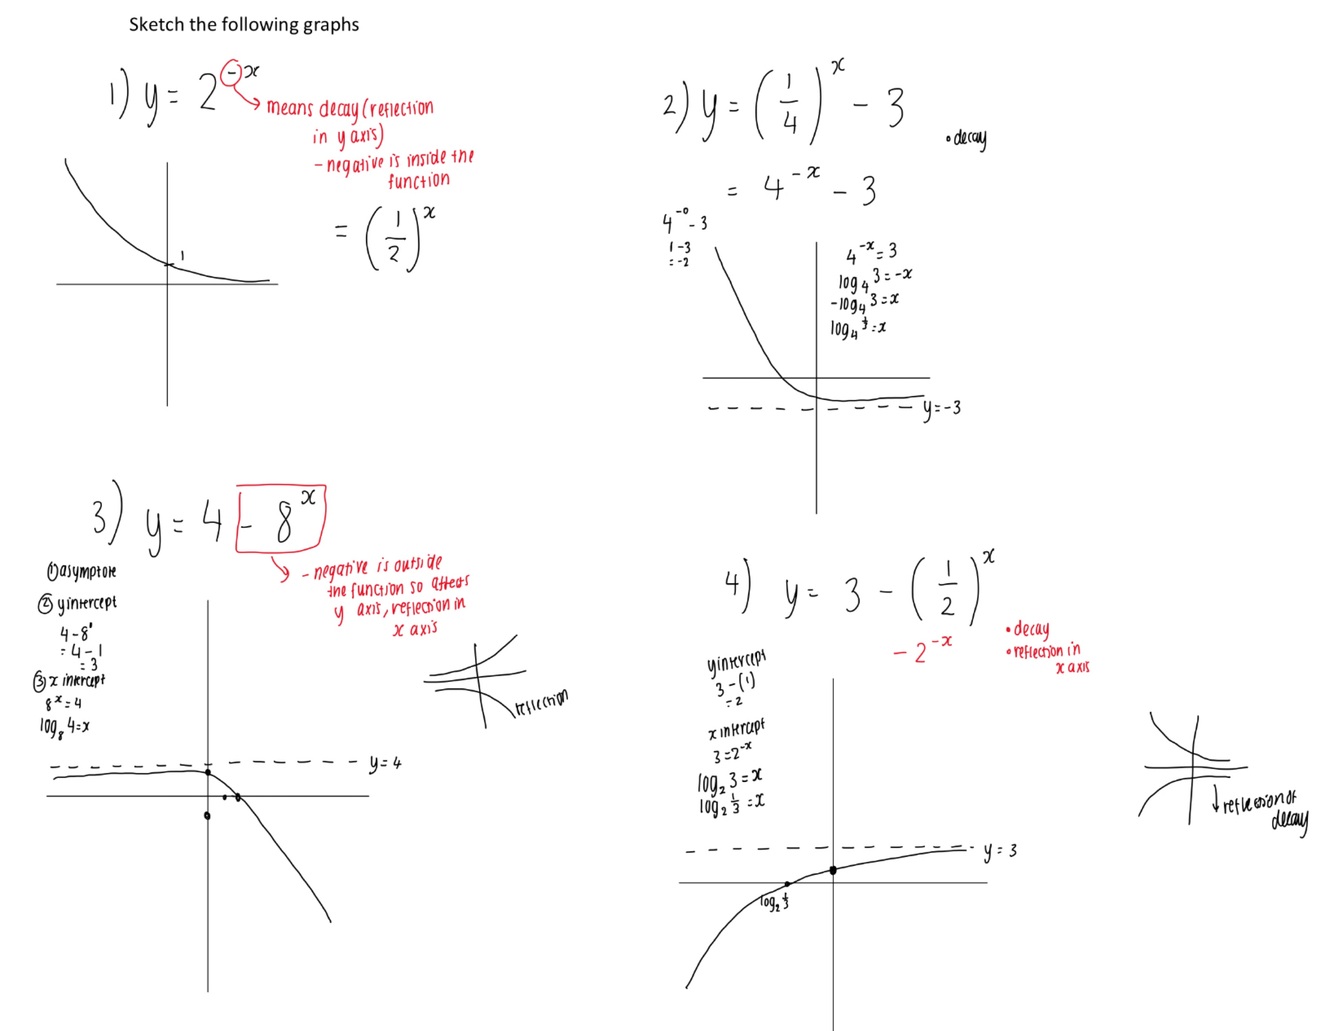 Sketch the following graphs
1) y = 2^{-x}
means decay (reflection
in y axis)
- negative is inside the
function
= (1/2)^x
1
2) y = (1/4)^x - 3
• decay
= 4^{-x} - 3
4^{-0} - 3
1 - 3
= -2
4^{-x} = 3
log_4 3 = -x
-log_4 3 = x
log_4 1/3 = x
y = -3
3) y = 4 - 8^x
- negative is outside
the function so affects
y axis, reflection in
x axis
① asymptote
② y intercept
= 4 - 1
= 3
③ x intercept
8^x = 4
log_8 4 = x
reflection
y = 4
4) y = 3 - (1/2)^x
- 2^{-x}
• decay
• reflection in
x axis
y intercept
3 - (1)
= 2
x intercept
3 = 2^{-x}
log_2 3 = x
log_2 1/3 = x
reflection of
decay
y = 3
log_2 1/3